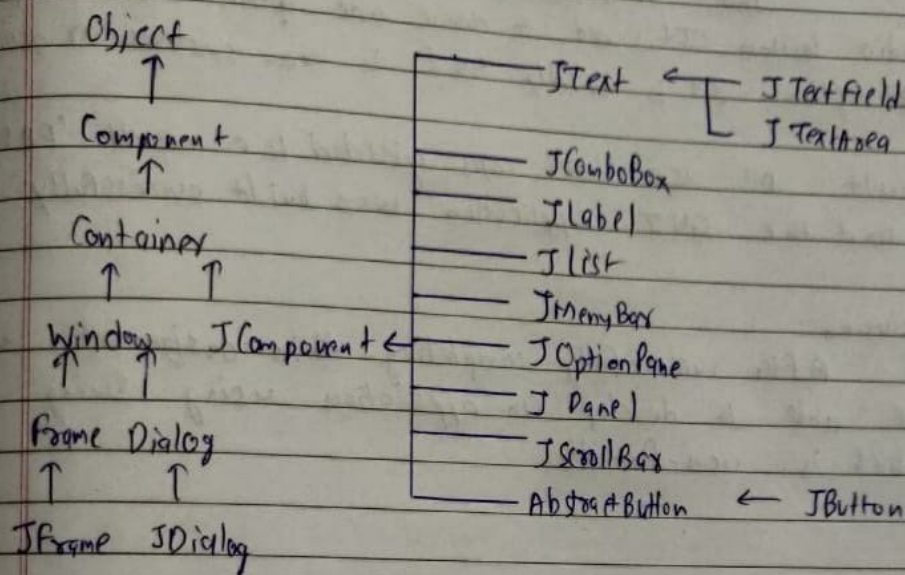 Object
Component
Container
Window JComponent
Frame Dialog
JFrame JDialog
JText
JTextField
JTextArea
JComboBox
JLabel
JList
JMenuBar
JOptionPane
JPanel
JScrollBar
AbstractButton
JButton